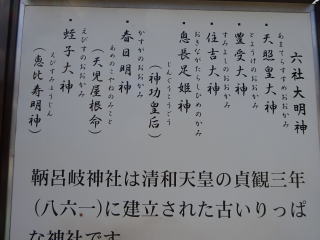 六社大明神
・天照皇大神
あまてらすすめおおかみ
・豊受大神
とようけのおおかみ
・住吉大神
すみよしのおおかみ
・息長足姫神
おきながたらしひめのかみ
(神功皇后)
じんぐうこうごう
・春日明神
かすがのおおかみ
(天児屋根命)
あめのこやねのみこと
・蛭子大神
えびすのおおかみ
(恵比寿明神)
えびすみょうじん
鞆呂岐神社は清和天皇の貞観三年
(八六一)に建立された古いりっぱ
な神社です